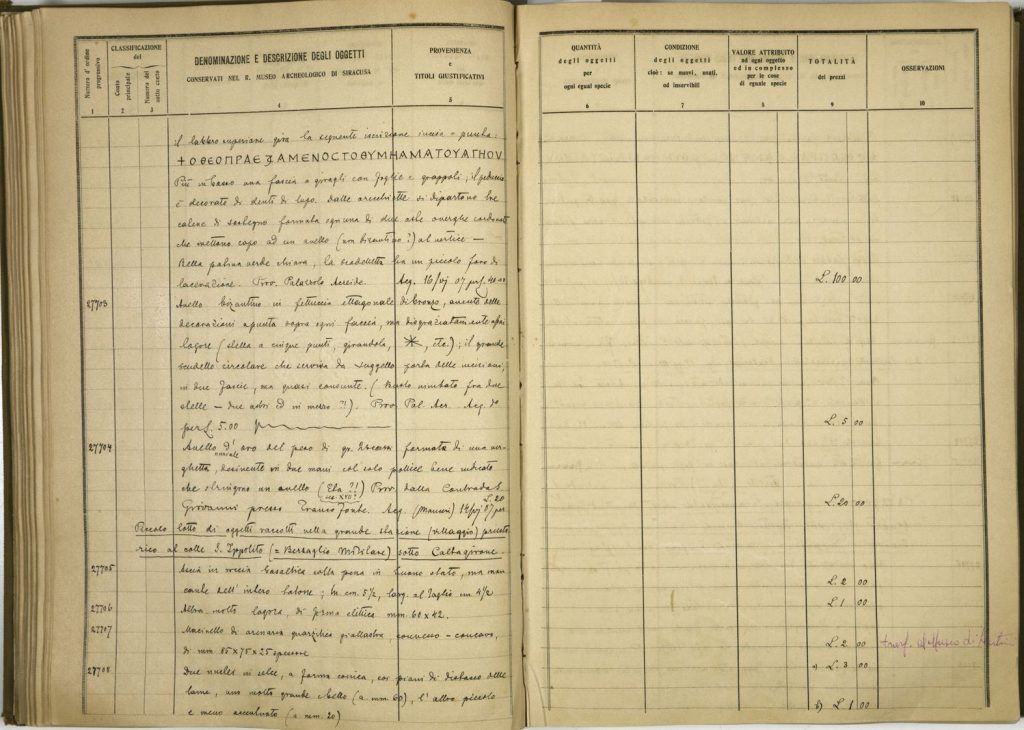 Numero d'ordine progressivo
CLASSIFICAZIONE del
Conto principale
Numero del sotto conto
DENOMINAZIONE E DESCRIZIONE DEGLI OGGETTI
CONSERVATI NEL R. MUSEO ARCHEOLOGICO DI SIRACUSA
PROVENIENZA
e
TITOLI GIUSTIFICATIVI
1 2 3 4 5
QUANTITÀ
degli oggetti
per
ogni egual specie
CONDIZIONE
degli oggetti
cioè: se nuovi, usati,
od inservibili
VALORE ATTRIBUITO
ad ogni oggetto
ed in complesso
per le cose
di eguale specie
TOTALITÀ
dei prezzi
OSSERVAZIONI
6 7 8 9 10
il labbro superiore gira la seguente iscrizione incisa
ΟΘΕΟΠΡΑΕ ΑΜΕΝΟCΤΟΘΥΜΗΑΜΑΤΟΥΑΓΗΟΥ
Più in basso una fascia a giragli con foglie e grappoli; il
è decorato di denti di lupo. Dalle orecchiette si dipartono tre
catene di sostegno formata ognuna di due
che mettono capo ad un anello (non bizantino?) al vertice —
Bella patina verde chiara, la ha un piccolo foro di
lacerazione. Prov. Palazzolo Acreide. Acq. 16/vj 07
L. 100 00
27703 Anello bizantino in fettuccia ottagonale di bronzo, avente delle
decorazioni a punta sopra ogni faccia, ma disgraziatamente
logore (stella a cinque punti, girandola, etc.); il grande
scudetto circolare che serviva da suggello porta delle incisioni,
in due fascie, ma quasi consunte. ( nimbato fra due
stelle — due ed in mezzo ?!). Prov. Pal. Acr. Acq. do
per L. 5.00
L. 5 00
27704 Anello d'oro del peso di gr. formato di una ver-
nuziale
ghetta, desinente in due mani col solo pollice bene indicato
che stringono un anello (Età ?!) Prov. dalla Contrada S.
sec. XVII?
Giovanni presso Francofonte. Acq. 07 per
L. 20
L. 20 00
Piccolo lotto di oggetti raccolti nella grande stazione (villaggio) preisto-
rico al colle S. Ippolito (= Bersaglio Militare) sotto Caltagirone.
27705 Ascia in roccia basaltica colla penna in buono stato, ma man-
cante dell'intero tallone; ln cm. 5 1/2, larg. al taglio cm 4 1/2
L. 2 00
27706 Altra molto logora, di forma elittica mm. 60 x 42.
L. 1 00
27707 Macinello di arenaria quarzitica giallastra, convesso-concavo,
di mm. 85 x 75 x 25 spessore
L. 2 00
27708 Due nuclei in selce, a forma conica, coi piani di distacco delle
a) L. 3 00
lame, uno molto grande e bello (a mm. 60), l'altro piccolo
e meno accentuato (a mm. 20)
b) L. 1 00